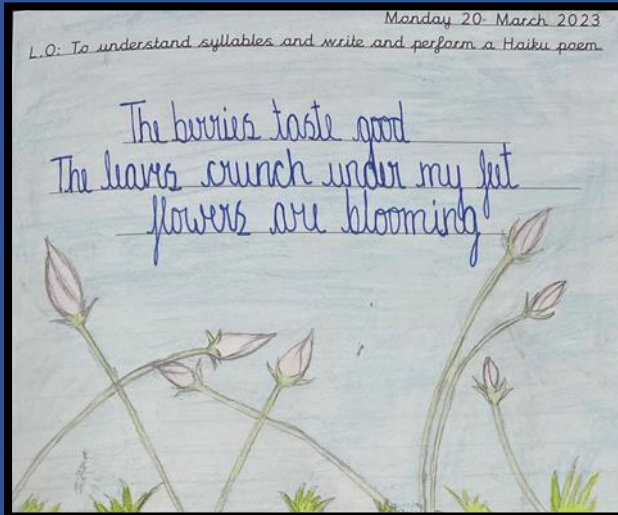 Monday 20 March 2023
L.O: To understand syllables and write and perform a Haiku poem
The berries taste good
The leaves crunch under my feet
flowers are blooming